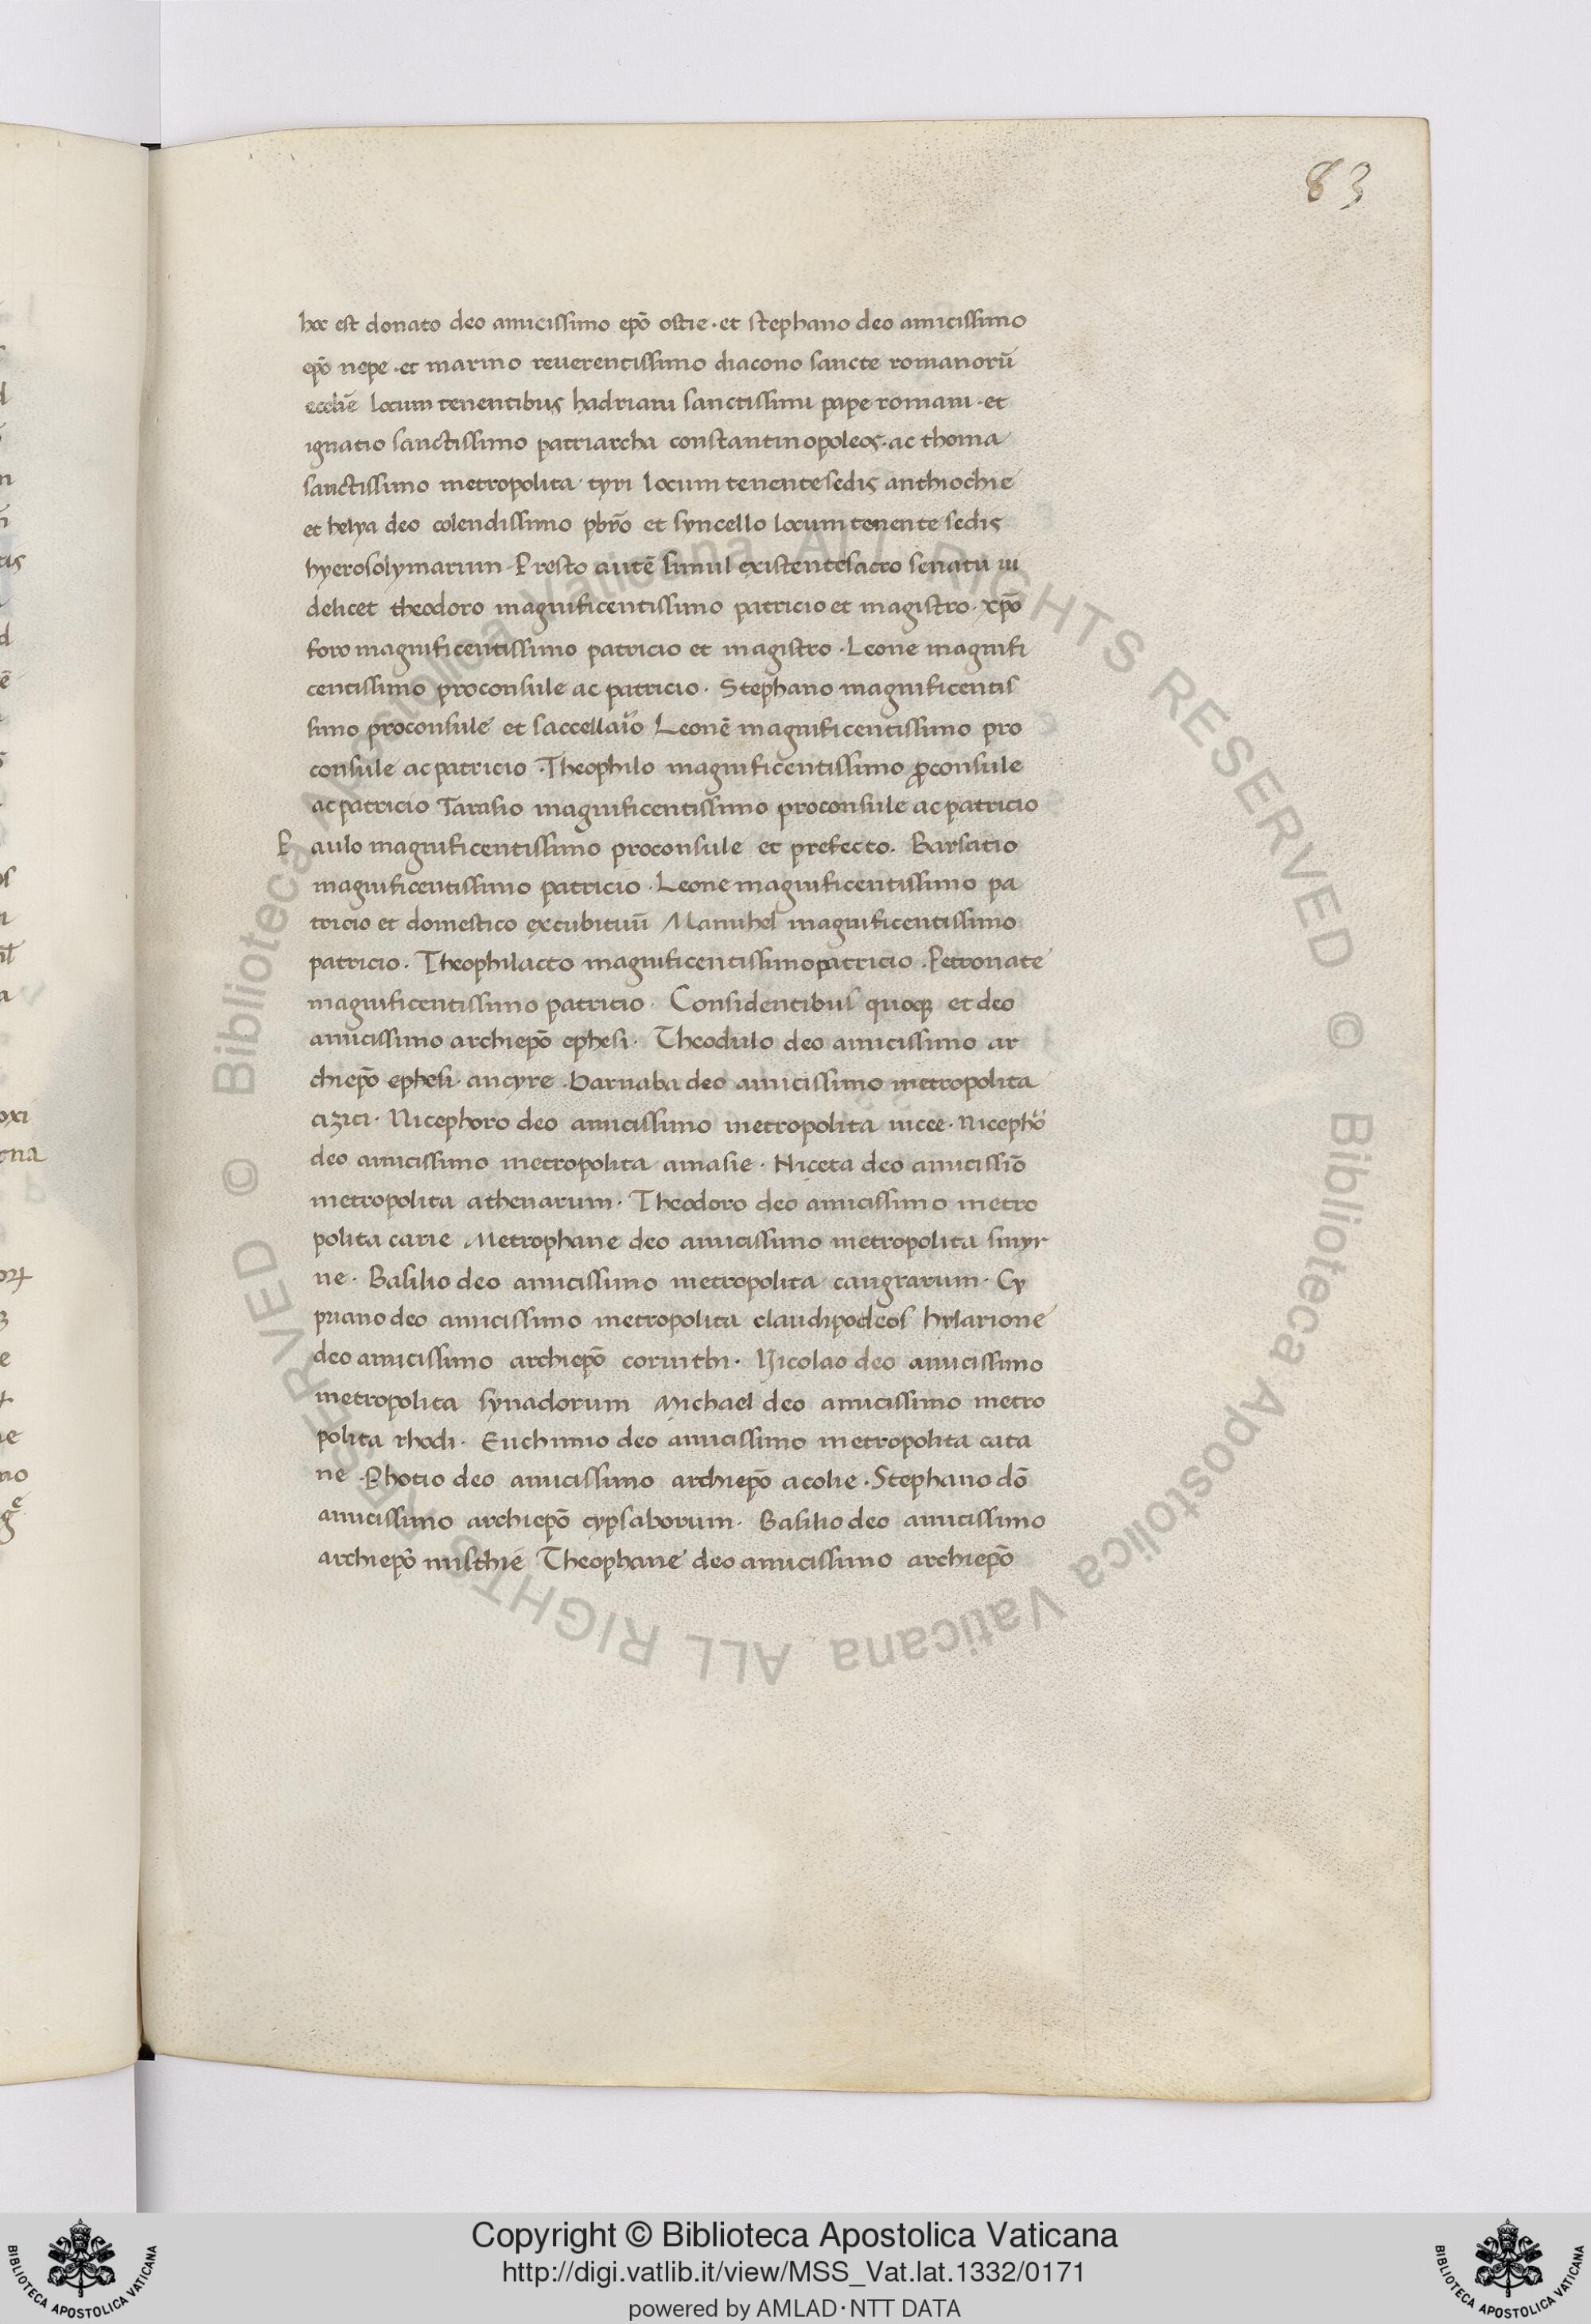 83
hoc est donato deo amicissimo epō ostie · et stephano deo amicissimo
epō nepe · et marino reuerentissimo diacono sancte romanorū
ecclīe locum tenentibus hadriani sanctissimi pape romani · et
ignatio sanctissimo patriarcha constantinopoleos · ac thoma
sanctissimo metropolita tyri locum tenente sedis anthiochie
et helya deo colendissimo pbrō et syncello locum tenente sedis
hyerosolymarum · Presto autē simul existente sacro senatu ui
delicet theodoro magnificentissimo patricio et magistro · xpō
foro magnificentissimo patricio et magistro · Leone magnifi
centissimo proconsule ac patricio · Stephano magnificentis
simo proconsule et saccellario Leonē magnificentissimo pro
consule ac patricio · Theophilo magnificentissimo ꝓconsule
ac patricio Tarasio magnificentissimo proconsule ac patricio
Paulo magnificentissimo proconsule et prefecto. Barsatio
magnificentissimo patricio · Leone magnificentissimo pa
tricio et domestico excubituū Manuhel magnificentissimo
patricio · Theophilacto magnificentissimo patricio · Petronate
magnificentissimo patricio · Considentibus quoqꝫ et deo
amicissimo archiepō ephesi · Theodulo deo amicissimo ar
chiepō ephesi · ancyre · barnaba deo amicissimo metropolita
cizici · Nicephoro deo amicissimo metropolita nicee · Nicephō
deo amicissimo metropolita amasie · Niceta deo amicissīo
metropolita athenarum · Theodoro deo amicissimo metro
polita carie Metrophane deo amicissimo metropolita smyr
ne · Basilio deo amicissimo metropolita cangrarum · Cy
priano deo amicissimo metropolita claudipodeos hylarione
deo amicissimo archiepō corinthi · Nicolao deo amicissimo
metropolita synadorum Michael deo amicissimo metro
polita rhodi · Euchimio deo amicissimo metropolita cata
ne · Photio deo amicissimo archiepō acolie · Stephano dō
amicissimo archiepō cypsaborum · Basilio deo amicissimo
archiepō misthie Theophane deo amicissimo archiepō
Copyright © Biblioteca Apostolica Vaticana
http://digi.vatlib.it/view/MSS_Vat.lat.1332/0171
powered by AMLAD·NTT DATA